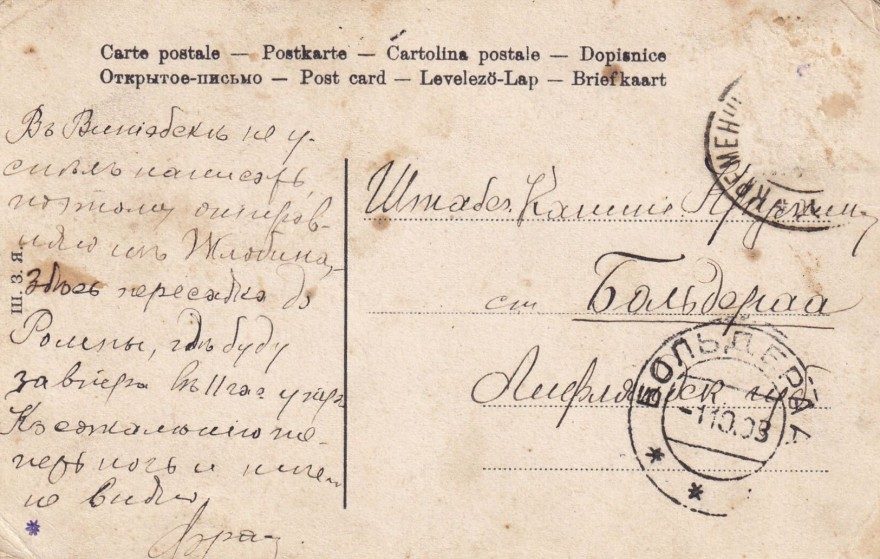 Carte postale — Postkarte — Cartolina postale — Dopisnice
Открытое-письмо — Post card — Levelező-Lap — Briefkaart
Въ Витебскѣ не у-
спѣлъ написать,
поэтому отправ-
ляю изъ Жлобина,
здѣсь пересадка до
Ромены, гдѣ буду
завтра въ 11 час утра
Къ сожалѣнію те-
перь ночь и ничего
не видно
Штабсъ Капит.
ст Больдераа
Лифляндск губ
КРЕМЕН
БОЛЬДЕРАА
-1.10.08
Ш. З. Я.